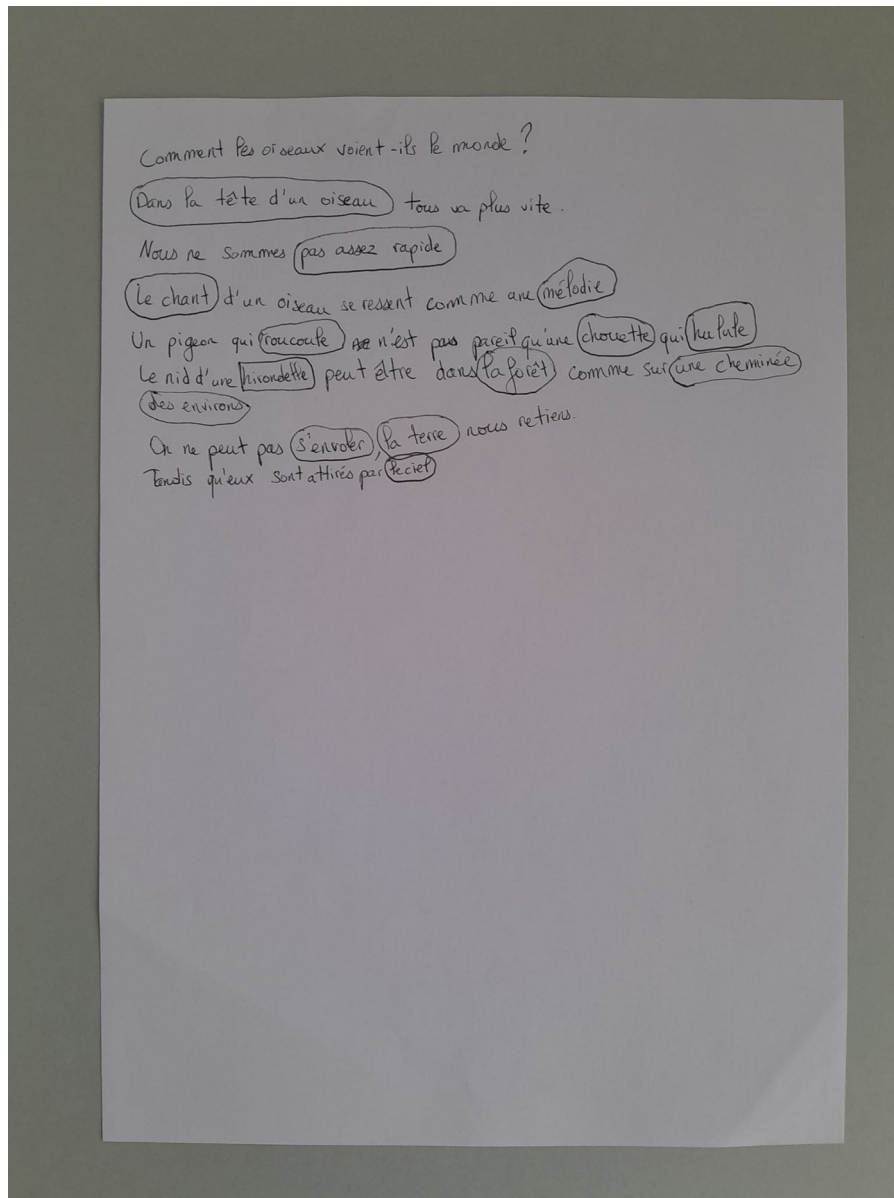 Comment les oiseaux voient-ils le monde ?
Dans la tête d'un oiseau tous va plus vite.
Nous ne sommes pas assez rapide
Le chant d'un oiseau se ressent comme une mélodie
Un pigeon qui roucoule n'est pas pareil qu'une chouette qui hulule
Le nid d'une hirondelle peut être dans la forêt comme sur une cheminée
des environs
On ne peut pas s'envoler, la terre nous retiens.
Tandis qu'eux sont attirés par le ciel